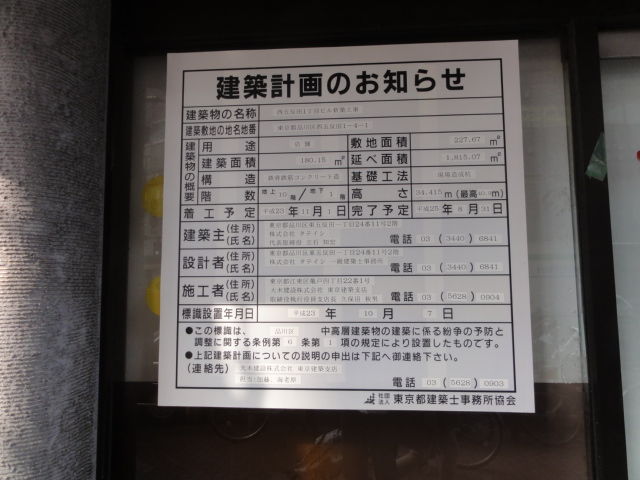 建築計画のお知らせ
建築物の名称 西五反田1丁目ビル新築工事
建築敷地の地名地番 東京都品川区西五反田1-4-1
建築物の概要
用途 店舗 敷地面積 227.67 m²
建築面積 180.15 m² 延べ面積 1,815.07 m²
構造 鉄骨鉄筋コンクリート造 基礎工法 現場造成杭
階数 地上 10 階/地下 1 階 高さ 34.415 m(最高 40.9 m)
着工予定 平成23年11月1日 完了予定 平成25年8月31日
建築主(住所)(氏名) 東京都品川区東五反田一丁目24番11号2階
株式会社 タテイシ
代表取締役 立石 知宏 電話 03 (3440) 6841
設計者(住所)(氏名) 東京都品川区東五反田一丁目24番11号2階
株式会社 タテイシ 一級建築士事務所 電話 03 (3440) 6841
施工者(住所)(氏名) 東京都江東区亀戸四丁目22番1号
大木建設株式会社 東京建築支店
取締役執行役員支店長 久保田 秋男 電話 03 (5628) 0904
標識設置年月日 平成23 年 10 月 7 日
●この標識は、 品川区 中高層建築物の建築に係る紛争の予防と
調整に関する条例第 6 条第 1 項の規定により設置したものです。
●上記建築計画についての説明の申出は下記へ御連絡下さい。
(連絡先) 大木建設株式会社 東京建築支店
担当:加藤、海老原 電話 03 (5628) 0903
社団法人 東京都建築士事務所協会